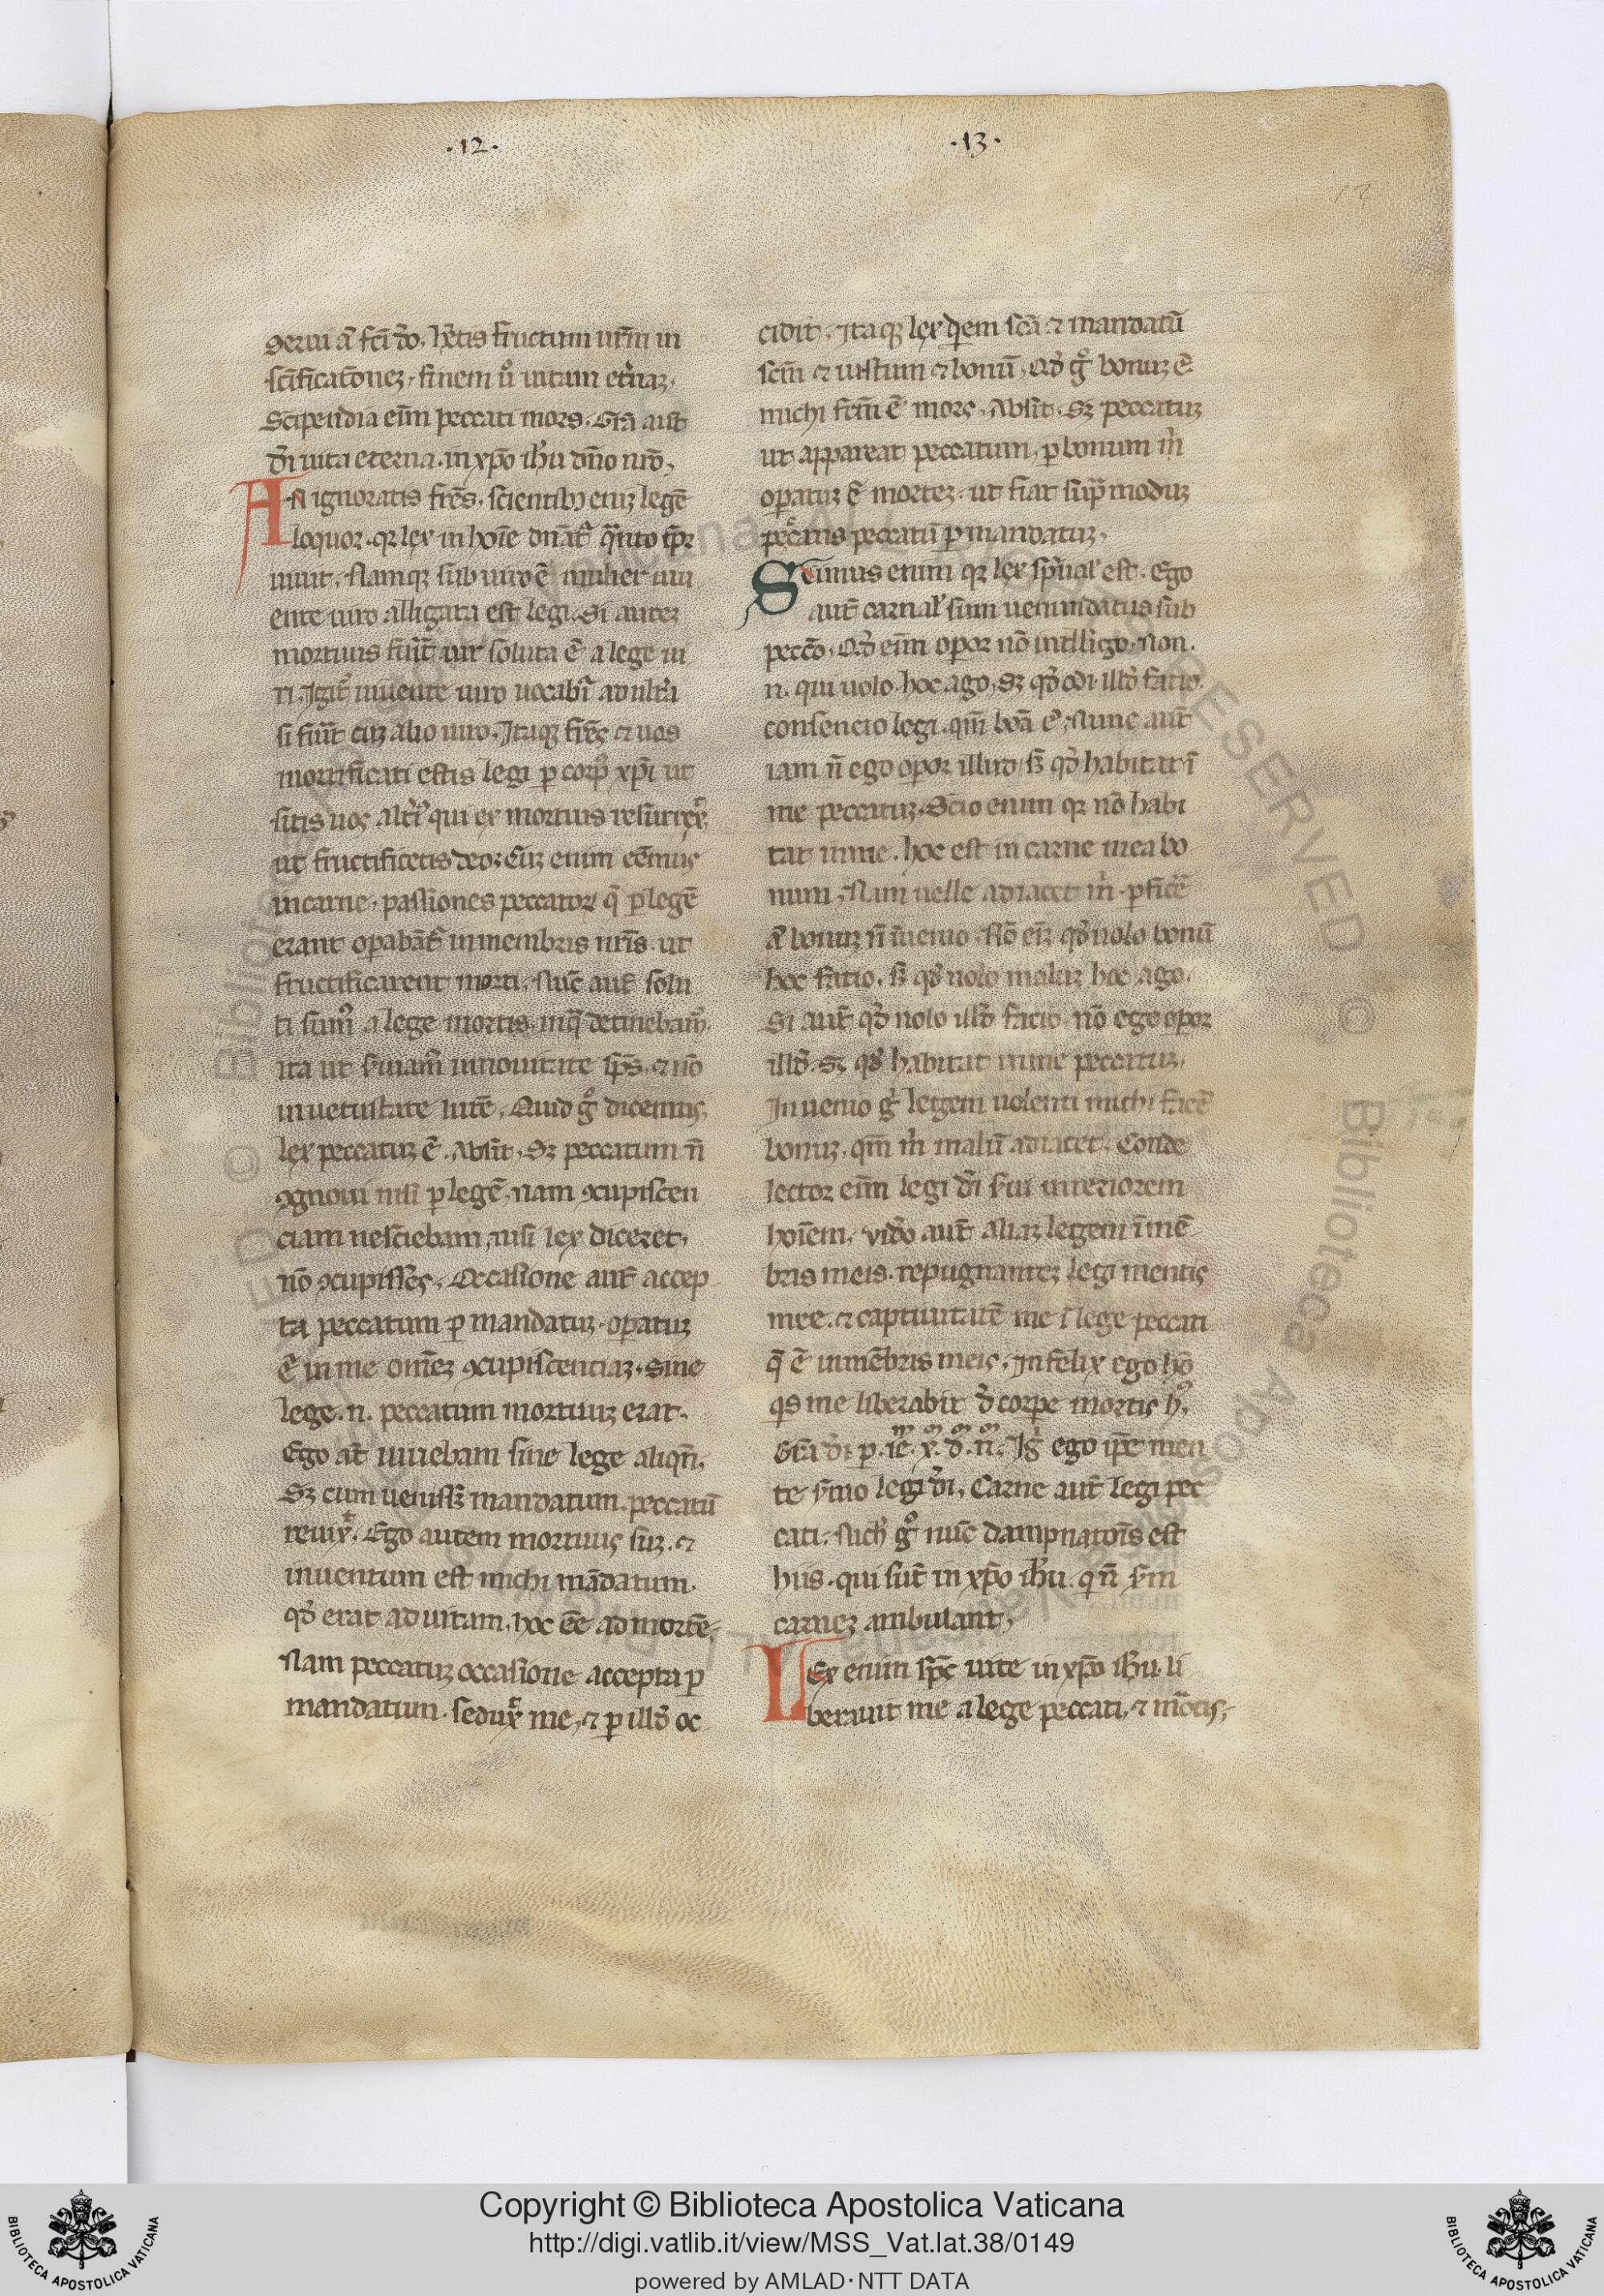 ·12·
·13·
Serui a͛ fc̄i d̄o, hētis fructum ur̄m in
sc̄ificatōnez, finem ū uitam et̄naz.
Stipendia eī̄m peccati mors. Gr̄a aut̄
d̄i uita eterna. in xp̄o ih̄u dn̄o nr̄o,
An ignoratis frēs. scientibꝫ eniz legē
loquor. qꝛ lex in hoīe dn̄at᷑ quanto tp̄r
uiuit, Namqꝫ sub uiro ē mulier uiu
ente uiro alligata est legi. Si autez
mortuus fuīt uir soluta ē a lege ui
ri, Igit᷑ uiuente uiro uocabit᷑ adultera
si fuīt cuz alio uiro, Itaqꝫ frēs ⁊ uos
mortificati estis legi ꝑ corpꝰ xp̄i ut
sitis uos alt̄iꝰ qui ex mortuis resurrex͛.
ut fructificetis deo, Cuz enim eēmus
in carne, passiones peccatoꝝ q̄ ꝑ legē
erant oꝑabāt᷑ in membris nr̄is. ut
fructificarent morti, Nūc aut̄ solu
ti sumꝰ a lege mortis, in q̄ detinebamꝰ.
ita ut s̄uiamꝰ in nouitate sp̄s, ⁊ nō
in uetustate lītē, Quid gͦ dicemus,
lex peccatuz ē. Absīt, Sꝫ peccatum n̄
ꝯgnoui nisi ꝑ legē, nam ꝯcupiscen
ciam nesciebam, nisi lex diceret,
nō ꝯcupisces, Occasione aut̄ accep
ta peccatum ꝑ mandatuz, oꝑatuz
ē in me omēz ꝯcupiscentiaz, Sine
lege .n. peccatum mortuuz erat.
Ego at̄ uiuebam sine lege aliqn̄,
Sꝫ cum uenissꝫ mandatum. peccatū
reuix͛, Ego autem mortuus suz. ⁊
inuentum est michi mādatum.
qd̄ erat ad uitam, hoc eē ad mortē,
Nam peccatuz occasione accepta ꝑ
mandatum. sedux͛ me, ⁊ ꝑ illd̄ oc
cidit, Itaqꝫ lex qͥdem sc̄a ⁊ mandatū
sc̄m ⁊ iustum ⁊ bonū, Qd̄ gͦ bonuz ē
michi fcm̄ ē mors, Absīt. Sꝫ peccatuz
ut appareat peccatum, ꝑ bonum m̄
oꝑatuz ē mortez, ut fiat sup̄ moduz
peccans peccatū ꝑ mandatuz,
Scimus enim qꝛ lex spūal᷑ est. Ego
aut̄ carnal᷑ sum uenundatus sub
peccō, Qd̄ eī̄m oꝑor nō intelligo, Non.
n. qui uolo hoc ago, Sꝫ qd̄ odi illd̄ facio
consencio legi. qm̄ bōa ē, Nunc aut̄
iam n̄ ego oꝑor illud, sꝫ qd̄ habitat ī
me peccatuz, Scio enim qꝛ nō habi
tat in me. hoc est in carne mea bo
num, Nam uelle adiacet m̄. ꝑficē
a͛ bonuz n̄ īuenio. Nō eīz qd̄ uolo bonū
hoc facio, sꝫ qd̄ nolo maluz hoc ago.
Si aut̄ qd̄ nolo illd̄ facio, nō ego oꝑor
illd̄. Sꝫ qd̄ habitat in me peccatuz,
Inuenio gͥ legem uolenti michi facē
bonuz. qm̄ m̄ malū adiacet, Conde
lector eī̄m legi d̄i s̄m interiorem
hoīem, Vid̄o aut̄ aliaz legem ī mē
bris meis. repugnantez legi mentis
mee. ⁊ captiuitatē me ī lege peccati
q̄ ē in mēbris meis, Infelix ego hō
qͥs me liberabit d̄ corꝑe mortis hꝰ,
Gr̄a d̄i ꝑ .ie᷑. x᷑. d᷑. n᷑. Igͥ ego ip̄e men
te s̄uio legi d̄i, Carne aut̄ legi pec
cati, Nichil gͦ nūc dampnatōis est
hiis. qui sūt in xp̄o ih̄u. q n̄ s̄m
carnez ambulant,
Lex enim sp̄s uite in xp̄o ih̄u. li
berauit me a lege peccati, ⁊ mōtis,
Copyright © Biblioteca Apostolica Vaticana
http://digi.vatlib.it/view/MSS_Vat.lat.38/0149
powered by AMLAD·NTT DATA
BIBLIOTECA APOSTOLICA VATICANA
BIBLIOTECA APOSTOLICA VATICANA